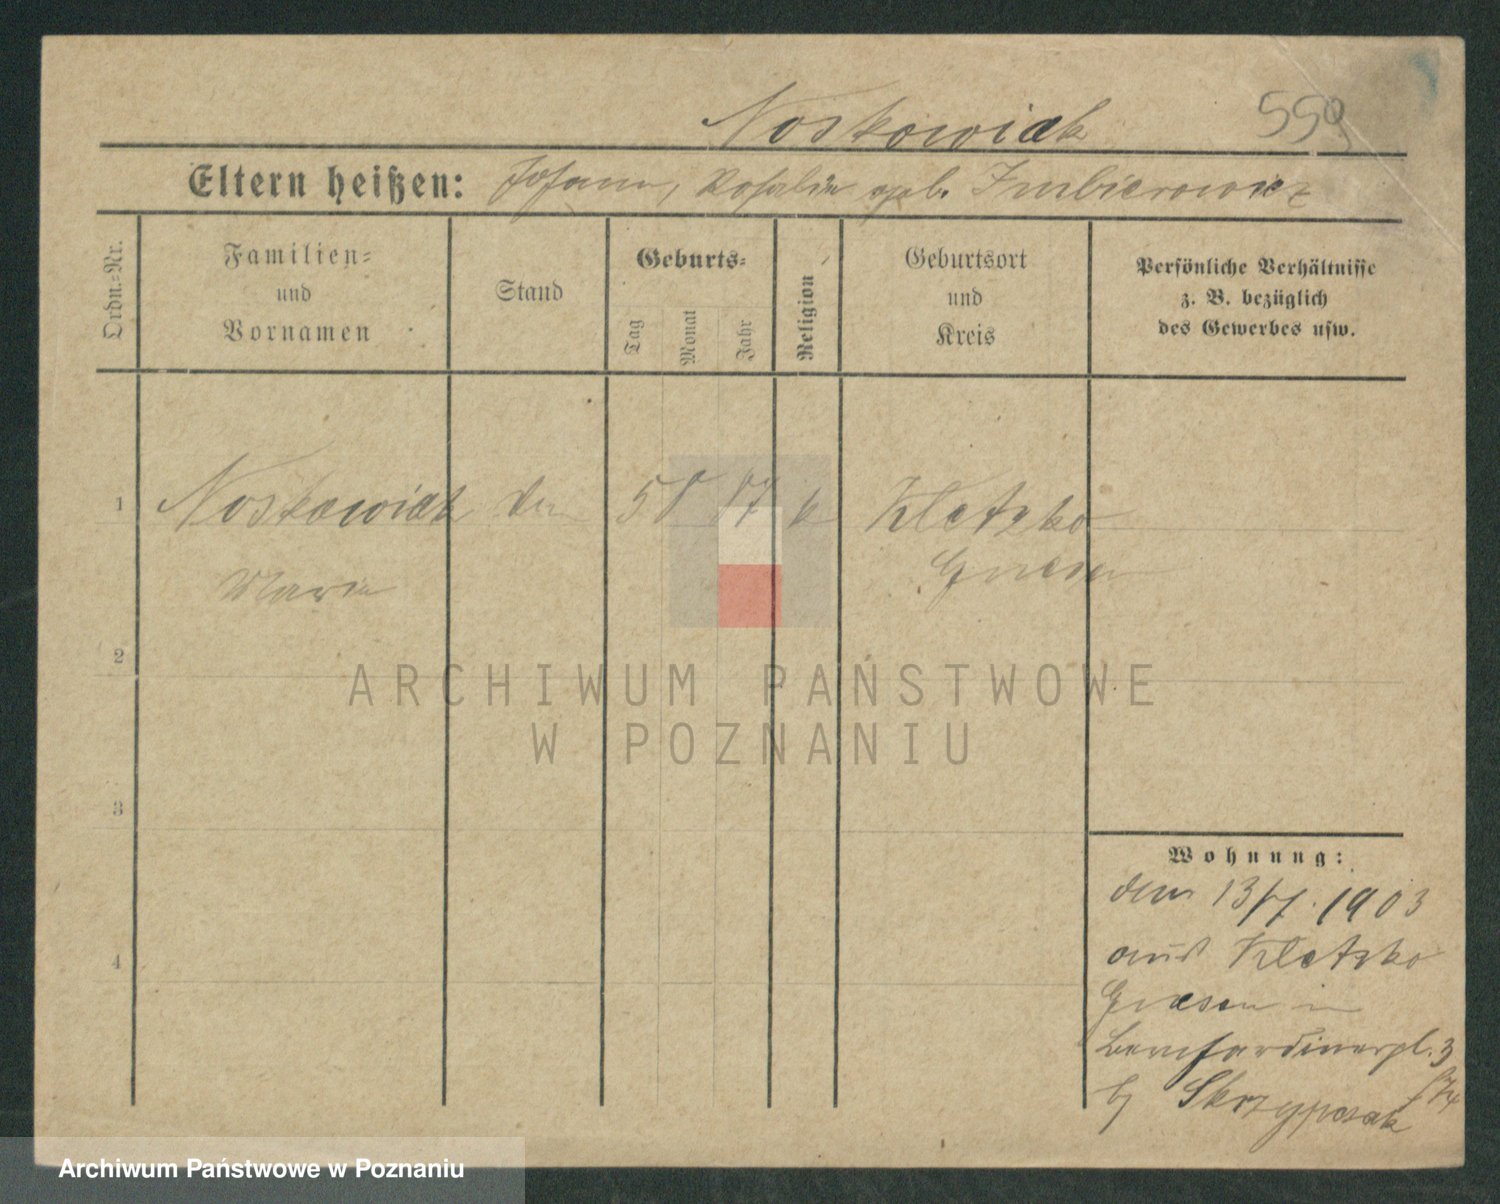 Noskowiak 559
Eltern heißen: Johann, Rosalie geb. Imbierowicz
Ordn.=Nr.
Familien=
und
Vornamen
Stand
Geburts=
Tag
Monat
Jahr
Religion
Geburtsort
und
Kreis
Persönliche Verhältnisse
z. B. bezüglich
des Gewerbes usw.
1 Noskowiak 5 8 87 k Kletzko
Maria Gnesen
2
3
4
Wohnung:
den 13/7. 1903
aus Kletzko
Gnesen in
Bernhardinerpl. 3
b/ Skrzypczak
ARCHIWUM PAŃSTWOWE
W POZNANIU
Archiwum Państwowe w Poznaniu